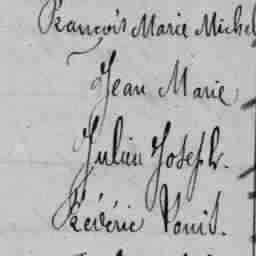 François Marie Michel
Jean Marie
Julien Joseph.
Frédéric Louis.